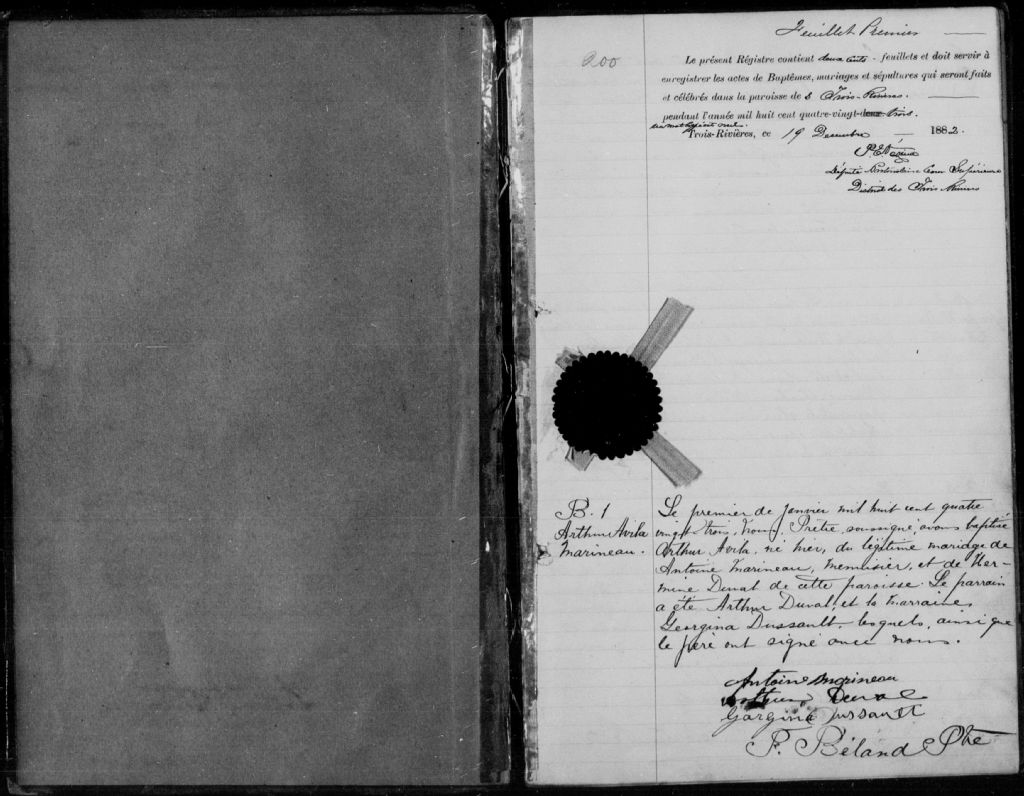 Feuillet Premier
200
Le présent Régistre contient deux cents feuillets et doit servir à
enregistrer les actes de Baptêmes, mariages et sépultures qui seront faits
et célébrés dans la paroisse de s Trois-Rivières.
pendant l'année mil huit cent quatre-vingt-deux trois.
Trois-Rivières, ce 19 Decembre 1882.
Député Protonotaire Cour Supérieure
District des Trois Rivieres
B. 1
Arthur Avila
Marineau.
Le premier de Janvier mil huit cent quatre
vingt-trois, Nous, Prêtre, soussigné, avons baptisé
Arthur Avila, né hier, du légitime mariage de
Antoine Marineau, menuisier, et de Her-
mine Duval de cette paroisse. Le parrain
a été Arthur Duval, et la marraine,
Georgina Dussault, lesquels, ainsi que
le père ont signé avec nous.
Antoine Marineau
Arthur Duval
Gorgina Dussault
F. Béland Ptre